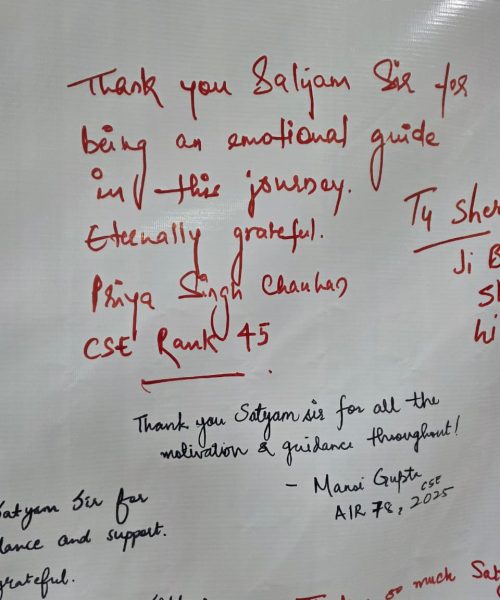 Thank you Satyam Sir for
being an emotional guide
in this journey.
Eternally grateful.
Priya Singh Chauhan
CSE Rank 45
Ty Sher
Ji B
Sh
hi
Thank you Satyam sir for all the
motivation & guidance throughout!
- Mansi Gupta
AIR 78, CSE 2025
Satyam Sir for
dance and support.
grateful.
so much Saty